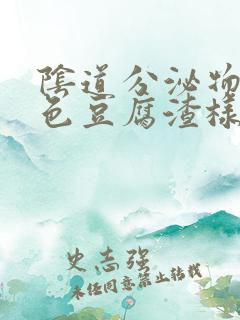 陰道分泌物
色豆腐渣樣
史志强
未经同意禁止转载